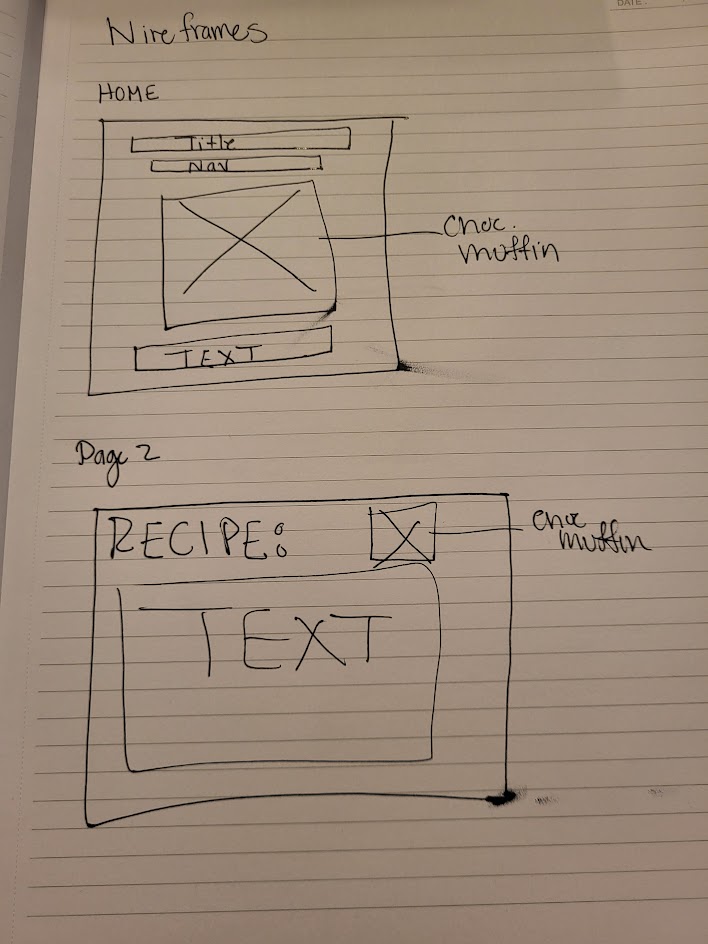 DATE:
Wireframes
HOME
Title
Nav
Choc.
muffin
TEXT
Page 2
RECIPE:
choc
muffin
TEXT